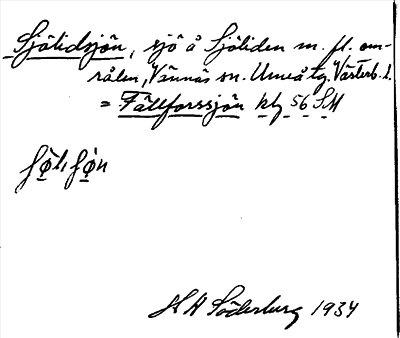 Sjölidsjön, sjö å Sjöliden m. fl. om-
råden, Vännäs sn. Umeå tg. Västerb. l.
= Fällforssjön kbl 56 SM
H A Söderburg 1934